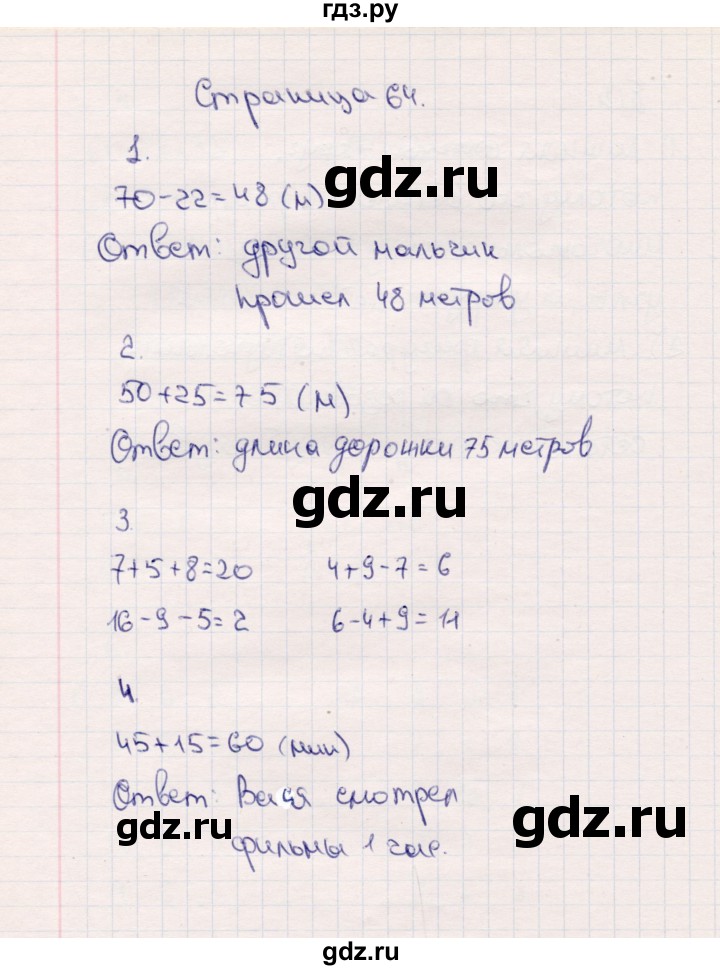 гдз.ру
Страница 64.
1.
gdz.ru
70-22=48 (м)
Ответ: другой мальчик
прошел 48 метров
2.
50+25=75 (м)
Ответ: длина дорожки 75 метров
gdz.ru
3
7+5+8=20 4+9-7=6
16-9-5=2 6-4+9=11
4.
45+15=60 (мин)
Ответ: Вася смотрел
gdz.ru gdz.ru
фильмы 1 час.
gdz.ru